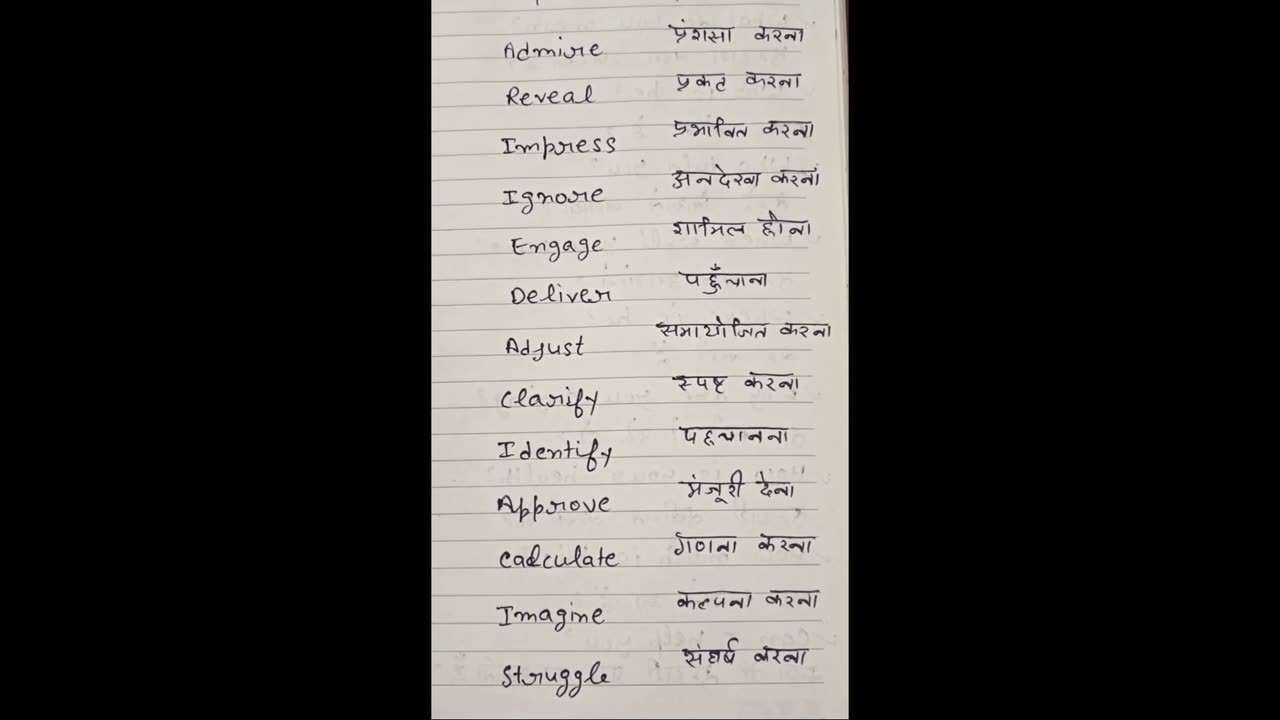 Admire प्रंशसा करना
Reveal प्रकट करना
Impress प्रभावित करना
Ignore अनदेखा करना
Engage शामिल होना
Deliver पहुँचाना
Adjust समायोजित करना
Clarify स्पष्ट करना
Identify पहचानना
Approve मंजूरी देना
Calculate गणना करना
Imagine कल्पना करना
Struggle संघर्ष करना